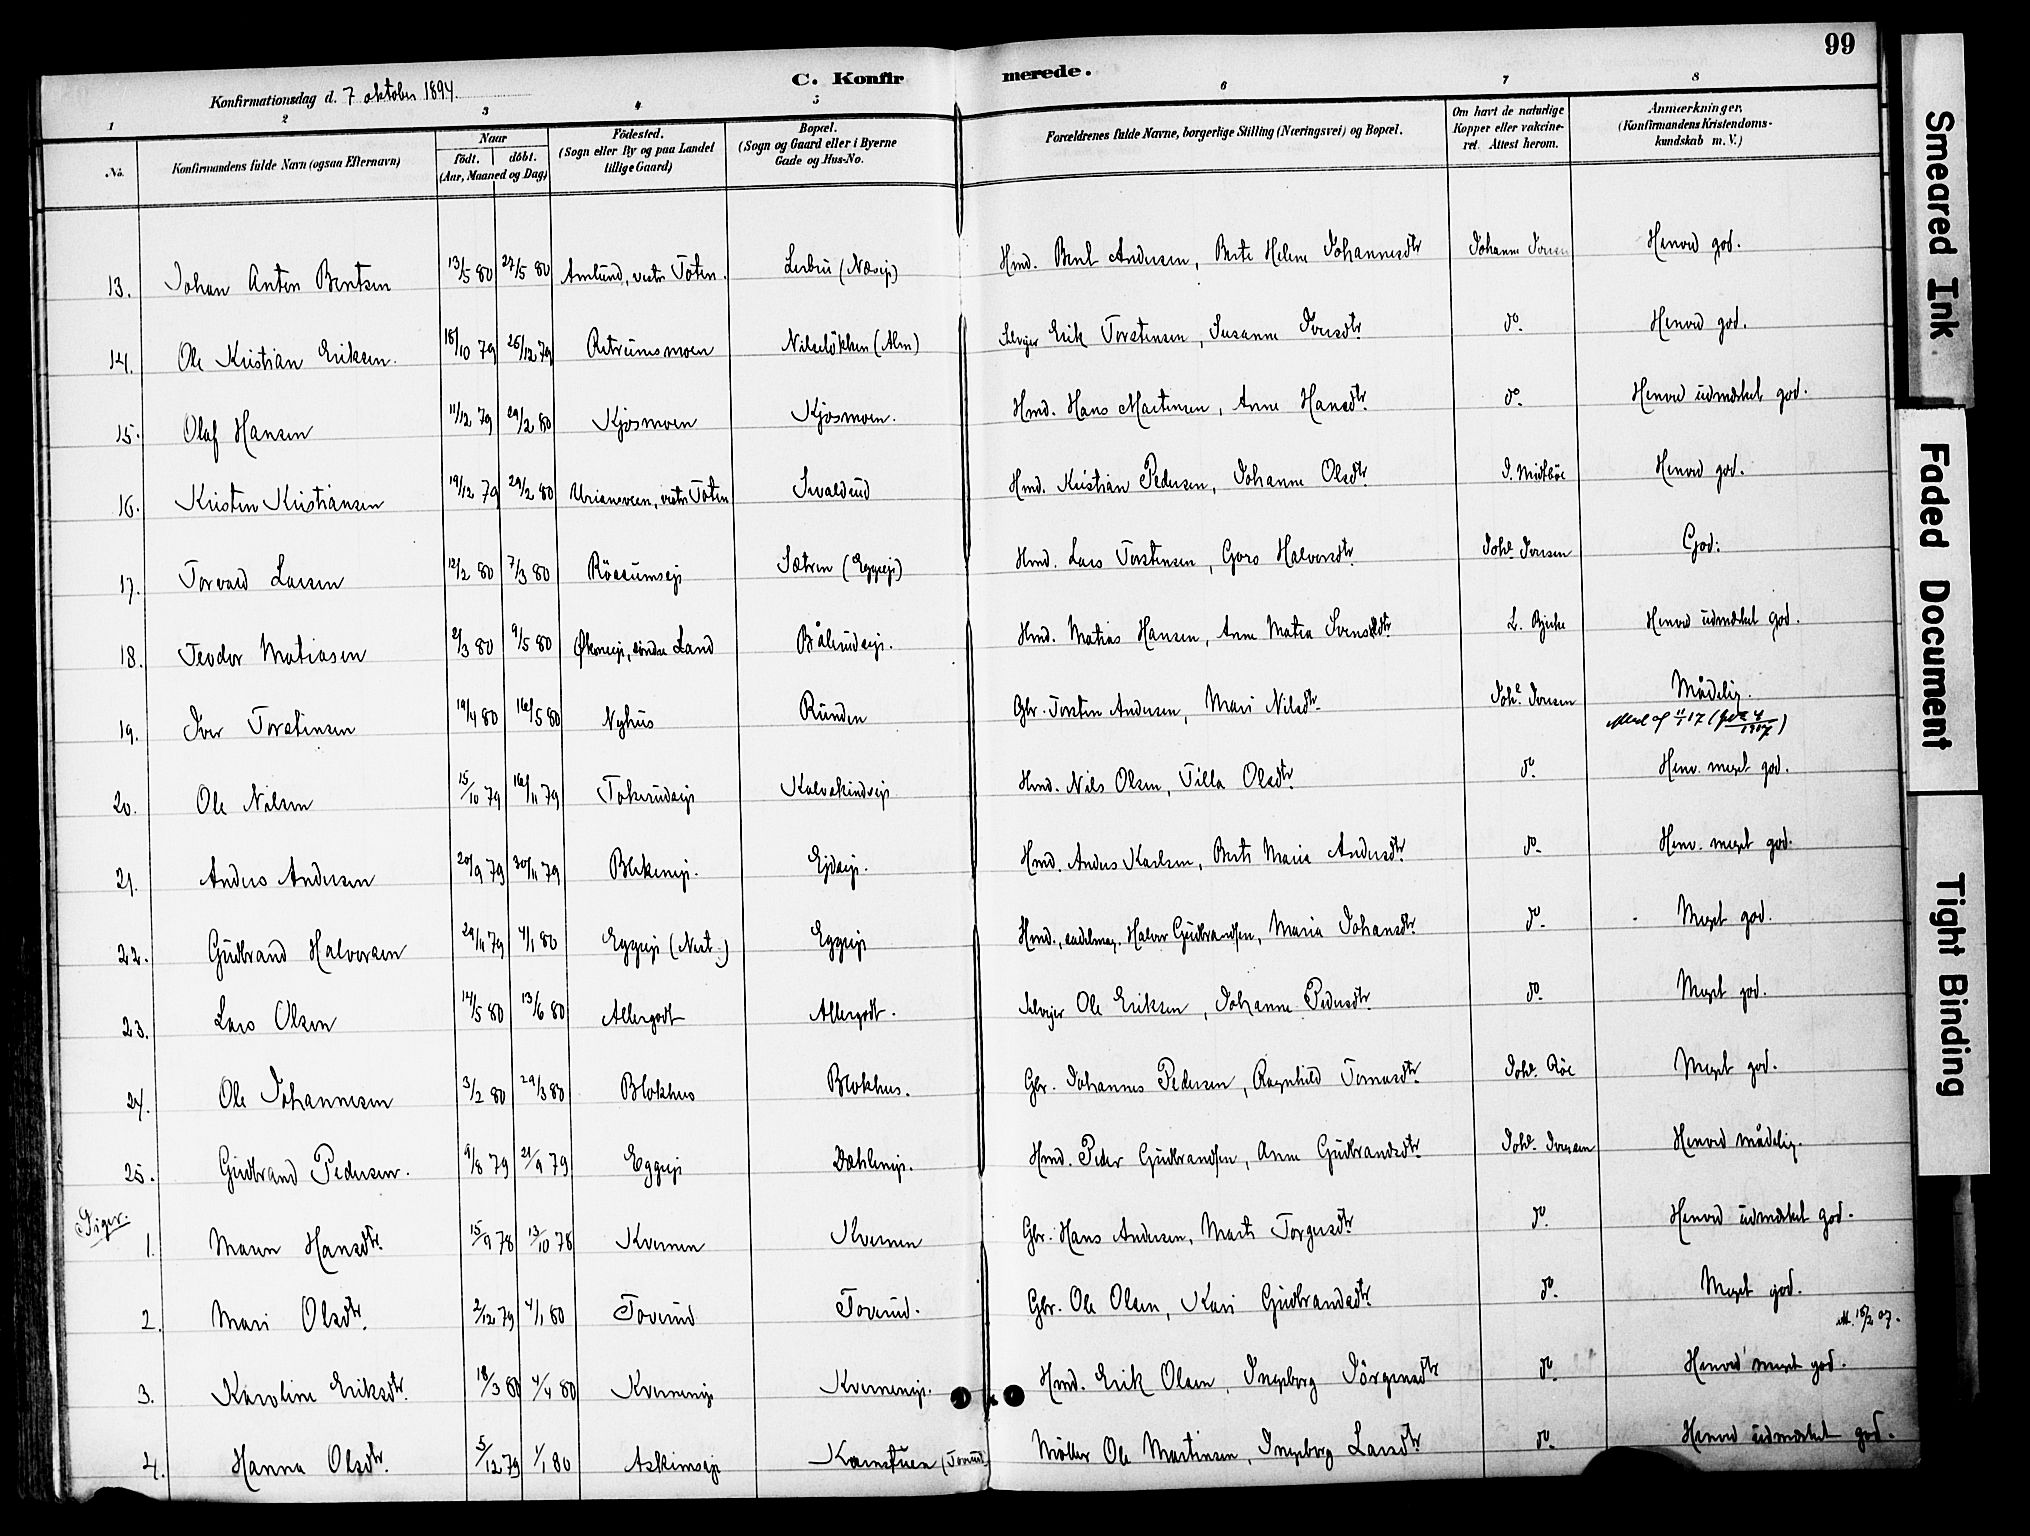 99
C. Konfirmerede.
Konfirmationsdag d. 7 oktober 1894.
1 2 3 4 5 6 7 8
No. Konfirmandens fulde Navn (ogsaa Efternavn) Naar födt. döbt. (Aar, Maaned og Dag) Födested. (Sogn eller By og paa Landet tillige Gaard) Bopæl. (Sogn og Gaard eller i Byerne Gade og Hus-No. Forældrenes fulde Navne, borgerlige Stilling (Næringsvei) og Bopæl. Om havt de naturlige Kopper eller vakcineret. Attest herom. Anmærkninger, (Konfirmandens Kristendomskundskab m. V.)
13. Johan Anton Bentsen 13/5 80 27/5 80 Amlund, vestre Toten. Hmd. Bent Andersen, Berte Helene Johannesdtr Johanne Iversen Henved god.
14. Ole Kristian Eriksen. 18/10 79 26/12 79 Retrumsmoen Nilselökken (Alm) Selvejer Erik Torstensen, Susanne Iversdtr. do. Henved god.
15. Olaf Hansen 11/12 79 29/2 80 Kjösmoen Kjösmoen. Hmd. Hans Martinsen, Anne Hansdtr. do. Henved udmærket god.
16. Kristen Kristiansen 19/12 79 29/2 80 vestre Toten Sivaldrud Hmd. Kristian Pedersen, Johanne Olsdtr. J. Midtböe Henved god.
17. Torvald Larsen 12/2 80 7/3 80 Rössumsejr Sætren (Eggeejr) Hmd. Lars Torstensen, Goro Halvorsdtr. Johs. Iversen God.
18. Teodor Matiasen 2/3 80 9/5 80 söndre Land Bålerudsejr. Hmd. Matias Hansen, Anne Matea Svensdtr. L. Bjerke Henved udmærket god.
19. Iver Torstensen 19/4 80 16/5 80 Nyhus Runden Gbr. Torsten Andersen, Mari Nilsdtr. Johs. Iversen Mådelig.
20. Ole Nilsen 15/10 79 16/11 79 Tokerudsejr Kalvskindsejr Hmd. Nils Olsen, Tilla Olsdtr. do Henv. meget god.
21. Anders Andersen 20/9 79 30/11 79 Blekenejr. Ejdsejr. Hmd. Anders Karlsen, Berte Maria Andersdtr. do. Henv. meget god.
22. Gudbrand Halvorsen 29/11 79 4/1 80 Eggeejr (Nest.) Eggeejr Hmd., sadelmag. Halvor Gudbrandsen, Maria Johansdtr. do. Meget god.
23. Lars Olsen 14/5 80 13/6 80 Allergodt Allergodt. Selvejer Ole Eriksen, Johanne Pedersdtr. do. Meget god.
24. Ole Johannesen 3/2 80 29/3 80 Blokhus Blokhus. Gbr. Johannes Pedersen, Ragnhild Tomasdtr. Johs. Röe Meget god.
25. Gudbrand Pedersen. 9/8 79 21/9 79 Eggeejr Dæhlenejr. Hmd. Peder Gudbrandsen, Anne Gudbrandsdtr. Johs. Iversen Henved mådelig.
Piger.
1. Maren Hansdtr. 15/9 78 13/10 78 Kvernen Kvernen Gbr. Hans Andersen, Marte Torgersdtr. do. Henved udmærket god.
2. Mari Olsdtr. 2/12 79 4/1 80 Toverud Toverud. Gbr. Ole Olsen, Kari Gudbrandsdtr. do. Meget god.
M. 15/2 07.
3. Karoline Eriksdtr. 18/3 80 4/4 80 Kvernenejr Kvernenejr. Hmd. Erik Olsen, Ingeborg Jörgensdtr do. Henved meget god.
4. Hanna Olsdtr. 5/12 79 1/1 80 Askimsejr Kamstuen Möller Ole Martinsen, Ingeborg Larsdtr do. Henved udmærket god.
Smeared Ink
Faded Document
Tight Binding